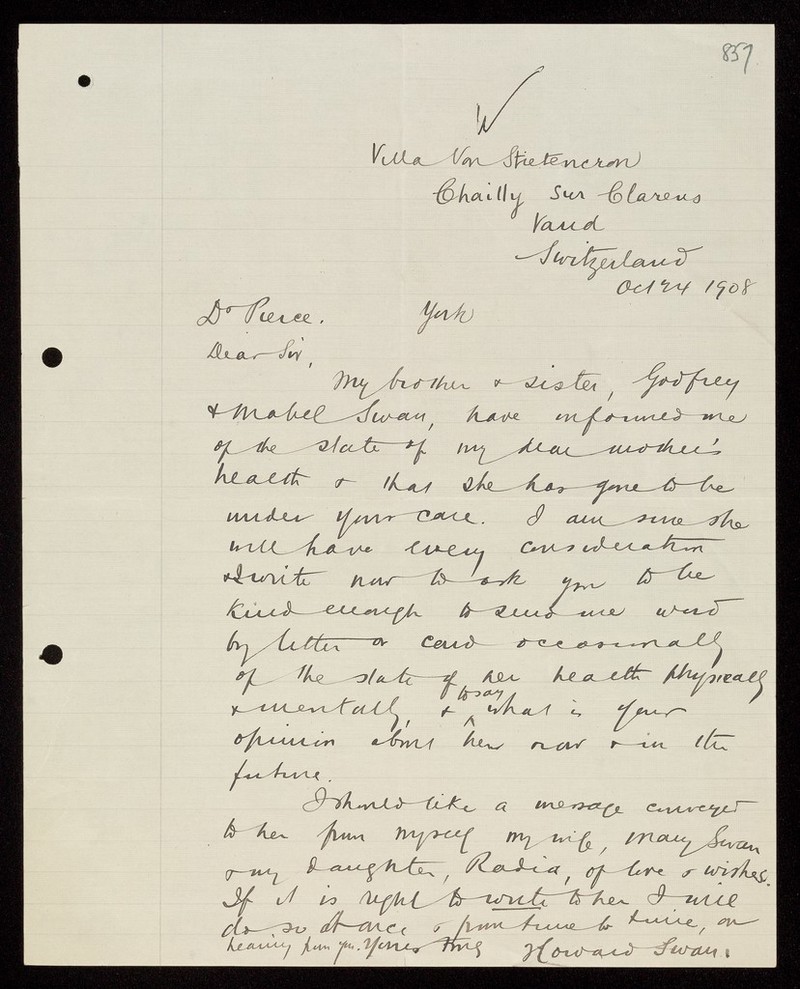 837
Villa Von Stietencron
Chailly Sur Clarens
Vaud
Switzerland
Oct 24 1908
Dr Pierce. York
Dear Sir,
My brother & sister, Godfrey
& Mabel Swan, have informed me
of the state of my dear mother's
health & that she has gone to be
under your care. I am sure she
will have every consideration
& I write now to ask you to be
kind enough to send me word
by letter or card occasionally
of the state of her health physically
& mentally, & to say what is your
opinion about her now & in the
future.
I should like a message conveyed
to her from myself my wife, Mary Swan
& my daughter, Radia, of love & wishes.
If it is right to write to her I will
do so at once & from time to time, on
hearing from you. Yours truly Howard Swan.